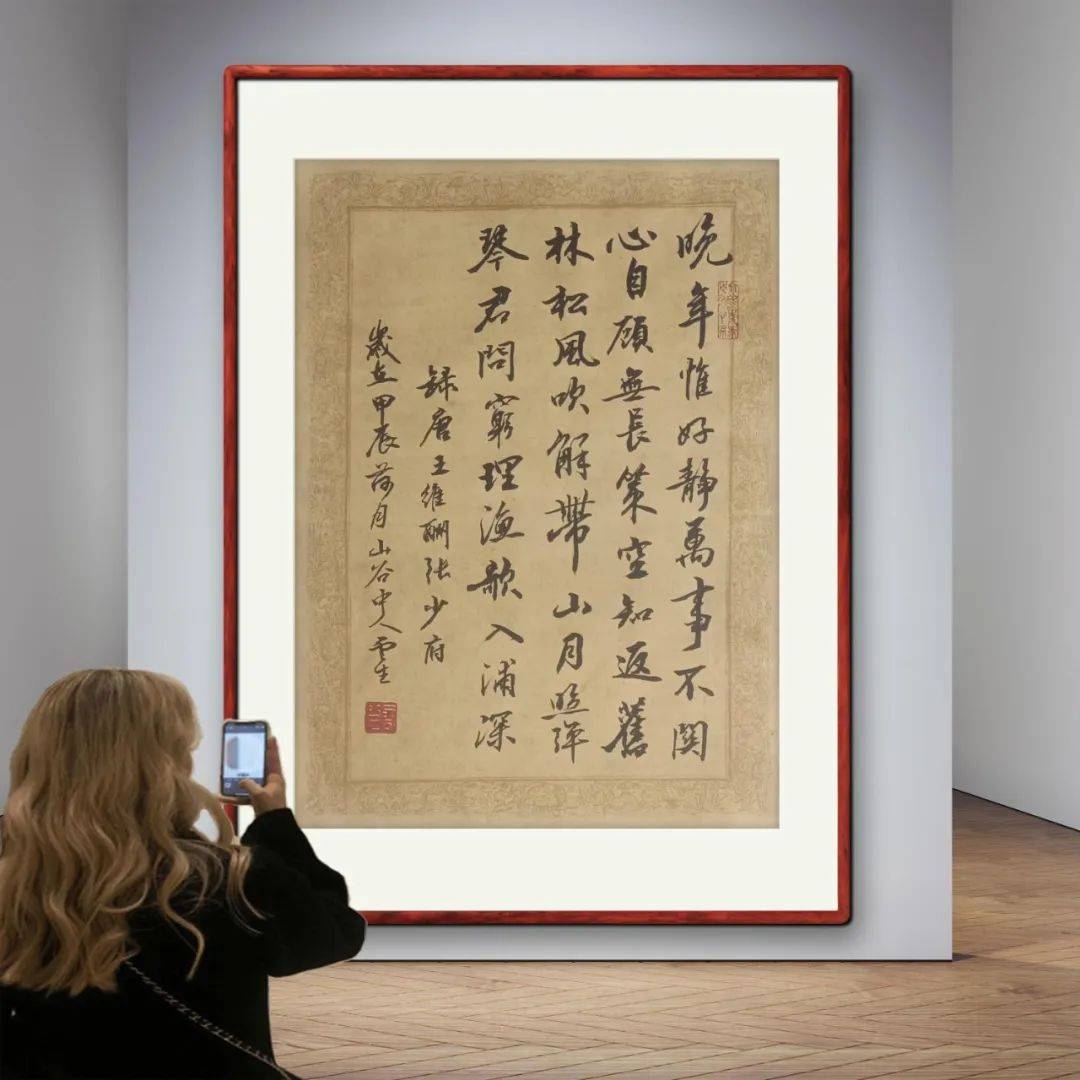 晚年惟好靜萬事不関
心自顧無長策空知返舊
林松風吹解帶山月照彈
琴君問窮理漁歌入浦深
録唐王維酬張少府
歲在甲辰荷月山谷中人雲生